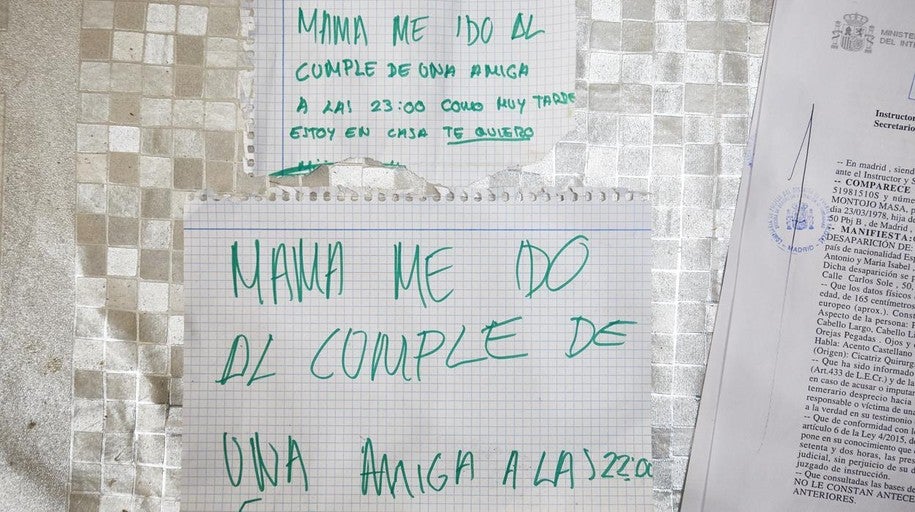 MAMA ME IDO AL
CUMPLE DE UNA AMIGA
A LAS 23:00 COMO MUY TARDE
ESTOY EN CASA TE QUIERO
MAMA ME IDO
AL COMPLE DE
UNA AMIGA A LAS 22:00
MINISTE
DEL INT
Instructor
Secretario
-- En madrid , siend
ante el Instructor y S
-- COMPARECE
51981510S y númer
MONTOJO MASA, p
dia 23/03/1978, hija de
50 Pbj B , de Madrid ,
-- MANIFIESTA:
DESAPARICIÓN DE:
país de nacionalidad Esp
Antonio y Maria Isabel
Dicha desaparición se p
Calle Carlos Sole , 50,
-- Que los datos físicos
edad, de 165 centímetros
europeo (aprox.). Const
Aspecto de la persona: I
Cabello Largo, Cabello La
Orejas Pegadas . Ojos y c
Habla: Acento Castellano
(Origen): Cicatriz Quirurg
-- Que ha sido informado
(Art.433 de L.E.Cr.) y de la
en caso de acusar o imputar
temerario desprecio hacia
responsable o víctima de una
a la verdad en su testimonio
-- Que de conformidad con l
artículo 6 de la Ley 4/2015, d
pone en su conocimiento que
setenta y dos horas, las pres
judicial, sin perjuicio de su d
juzgado de instrucción.
-- Que consultadas las bases de
NO LE CONSTAN ANTECE
ANTERIORES.
MADRID